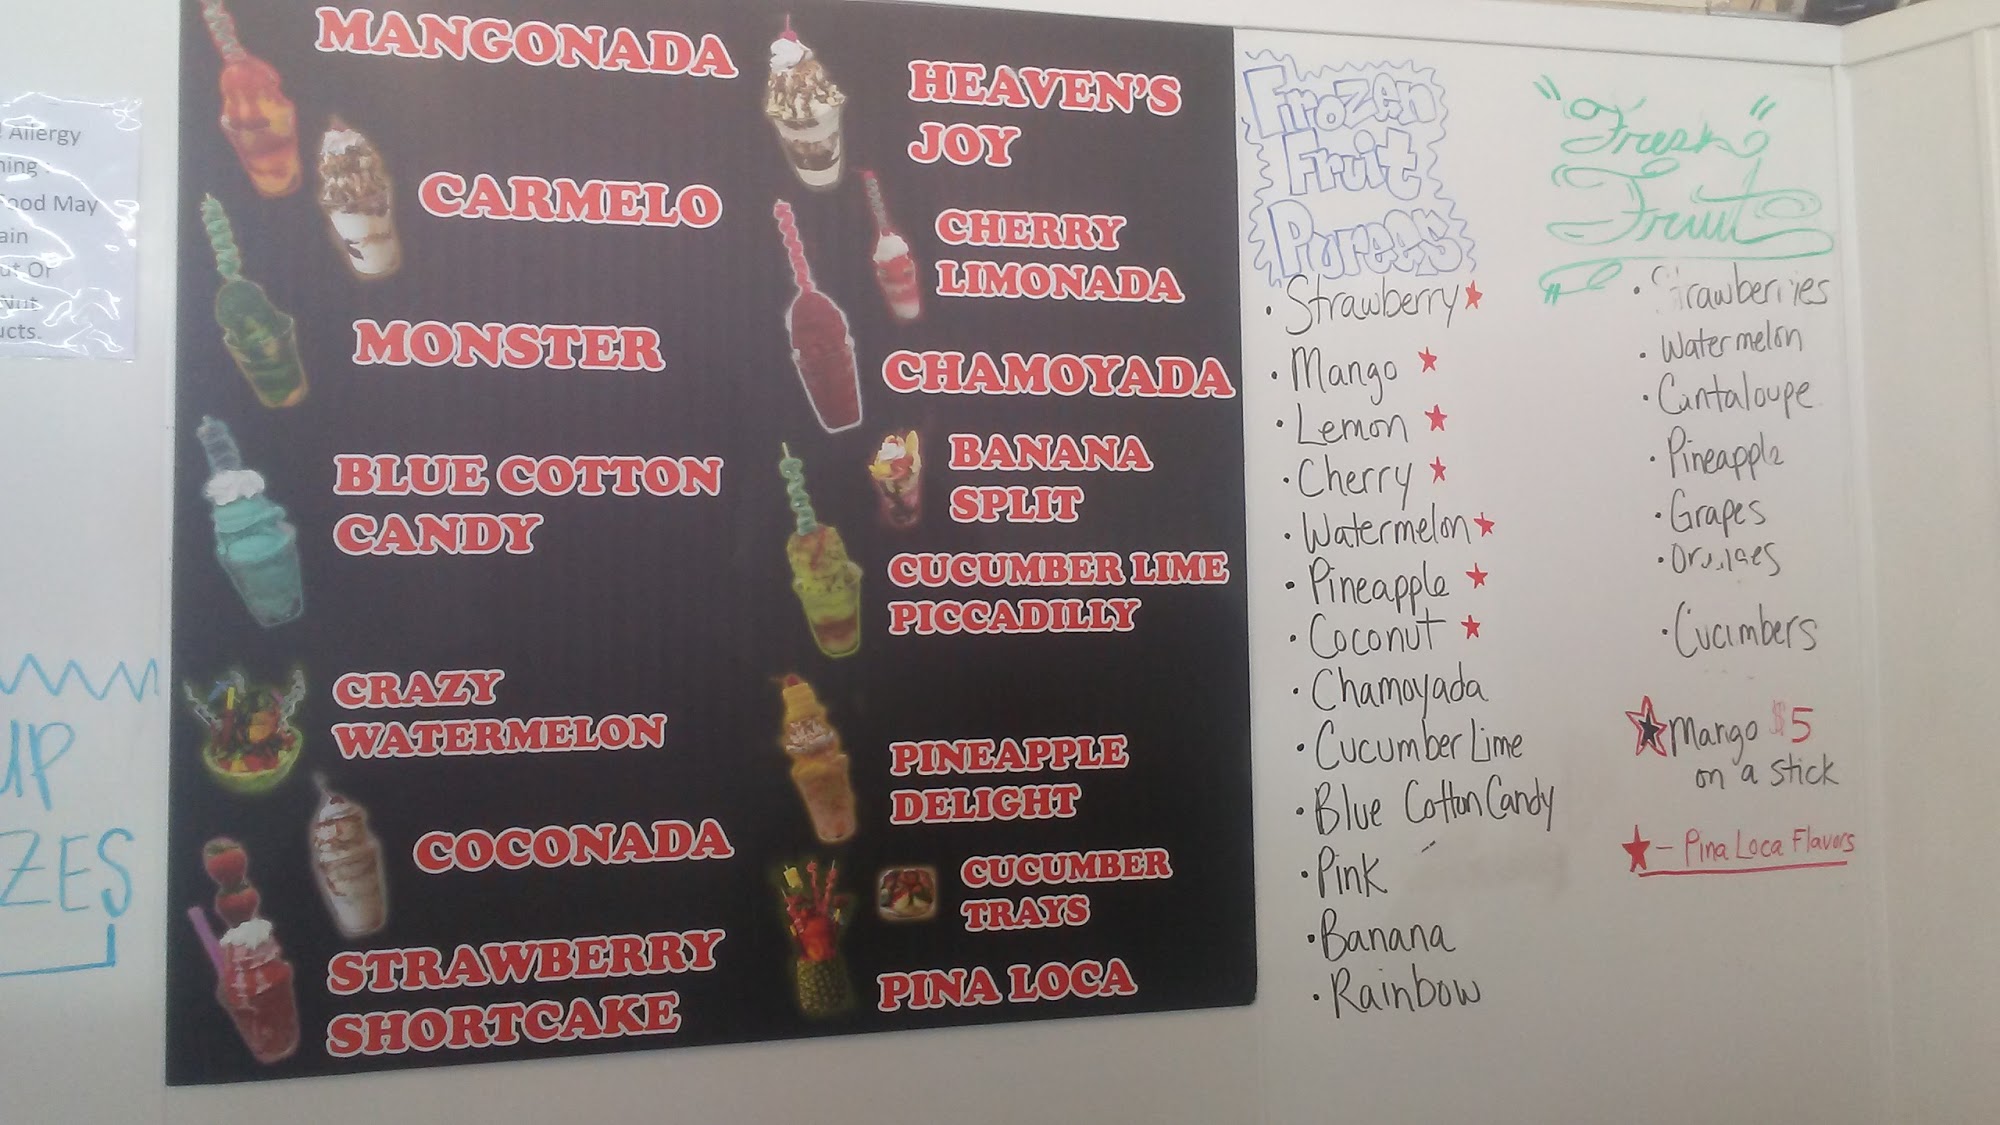 Allergy
Food May
Or
Nut
UP
ZES
MANGONADA
CARMELO
MONSTER
BLUE COTTON
CANDY
CRAZY
WATERMELON
COCONADA
STRAWBERRY
SHORTCAKE
HEAVEN'S
JOY
CHERRY
LIMONADA
CHAMOYADA
BANANA
SPLIT
CUCUMBER LIME
PICCADILLY
PINEAPPLE
DELIGHT
CUCUMBER
TRAYS
PINA LOCA
Frozen
Fruit
Purees
• Strawberry ★
• Mango ★
• Lemon ★
• Cherry ★
• Watermelon ★
• Pineapple ★
• Coconut ★
• Chamoyada
• Cucumber Lime
• Blue Cotton Candy
• Pink
• Banana
• Rainbow
"Fresh"
Fruit
• Strawberries
• Watermelon
• Cantaloupe
• Pineapple
• Grapes
• Oranges
• Cucumbers
★ Mango $5
on a stick
★ - Pina Loca Flavors